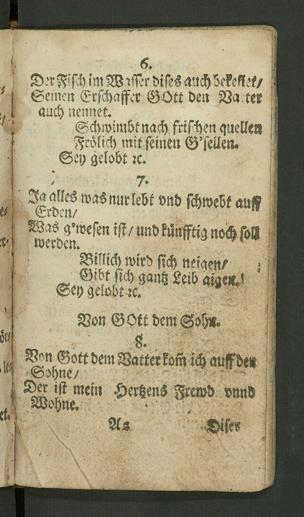 6.
Der Fisch im Wasser dises auch bekennet/
Seinen Erschaffer GOtt den Vatter
auch nennet.
Schwimbt nach frischen quellen
Frölich mit seinen G'sellen.
Sey gelobt ꝛc.
7.
Ja alles was nur lebt vnd schwebt auff
Erden/
Was g'wesen ist/ und künfftig noch soll
werden.
Billich wird sich neigen/
Gibt sich gantz Leib aigen.
Sey gelobt ꝛc.
Von GOtt dem Sohn.
8.
Von Gott dem Vatter kom̄ ich auff den
Sohne/
Der ist mein Hertzens Frewd vnnd
Wohne.
A2 Dises